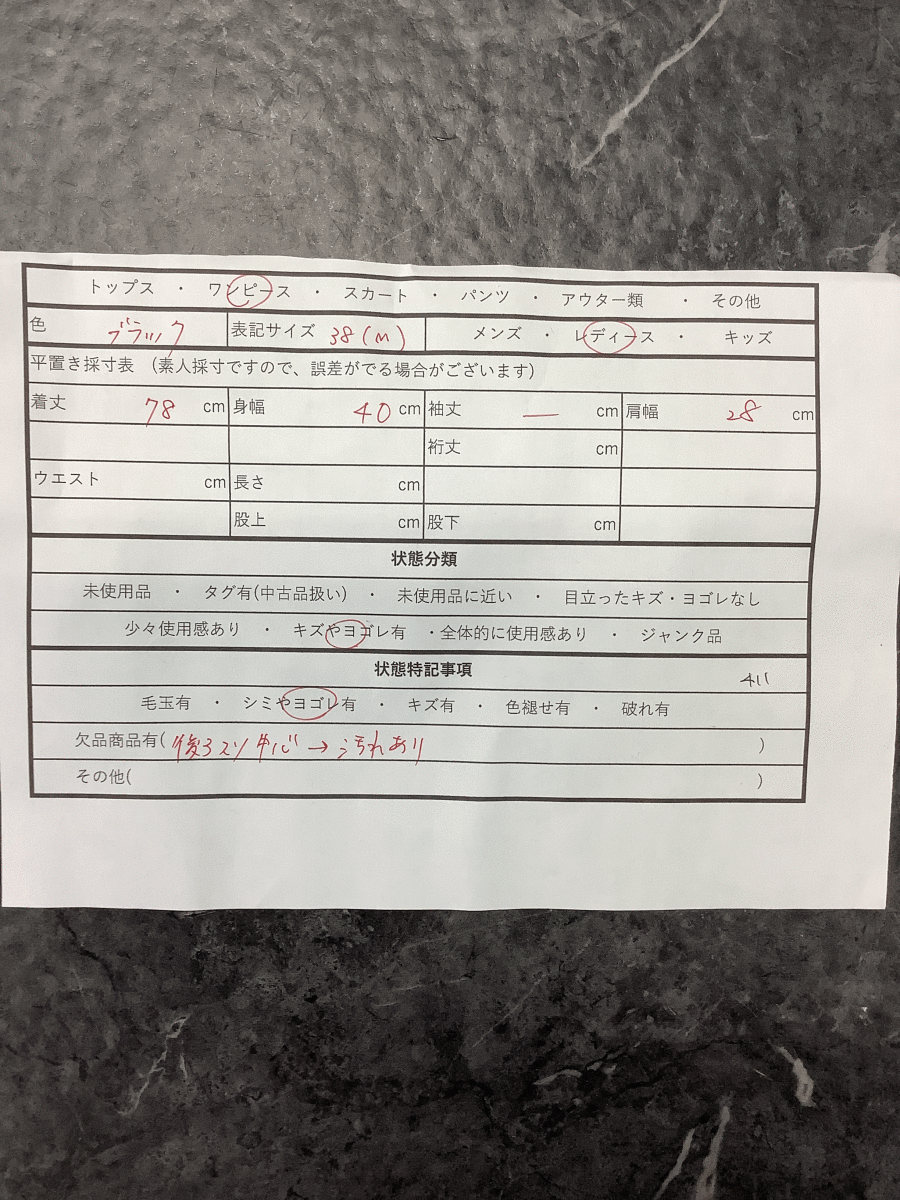 トップス ・ ワンピース ・ スカート ・ パンツ ・ アウター類 ・ その他
色 ブラック 表記サイズ 38(M) メンズ ・ レディース ・ キッズ
平置き採寸表 (素人採寸ですので、誤差がでる場合がございます)
着丈 78 cm 身幅 40 cm 袖丈 — cm 肩幅 28 cm
裄丈 cm
ウエスト cm 長さ cm
股上 cm 股下 cm
状態分類
未使用品 ・ タグ有(中古品扱い) ・ 未使用品に近い ・ 目立ったキズ・ヨゴレなし
少々使用感あり ・ キズやヨゴレ有 ・全体的に使用感あり ・ ジャンク品
状態特記事項 411
毛玉有 ・ シミやヨゴレ有 ・ キズ有 ・ 色褪せ有 ・ 破れ有
欠品商品有( 後ろスソ中心 → 汚れあり )
その他( )